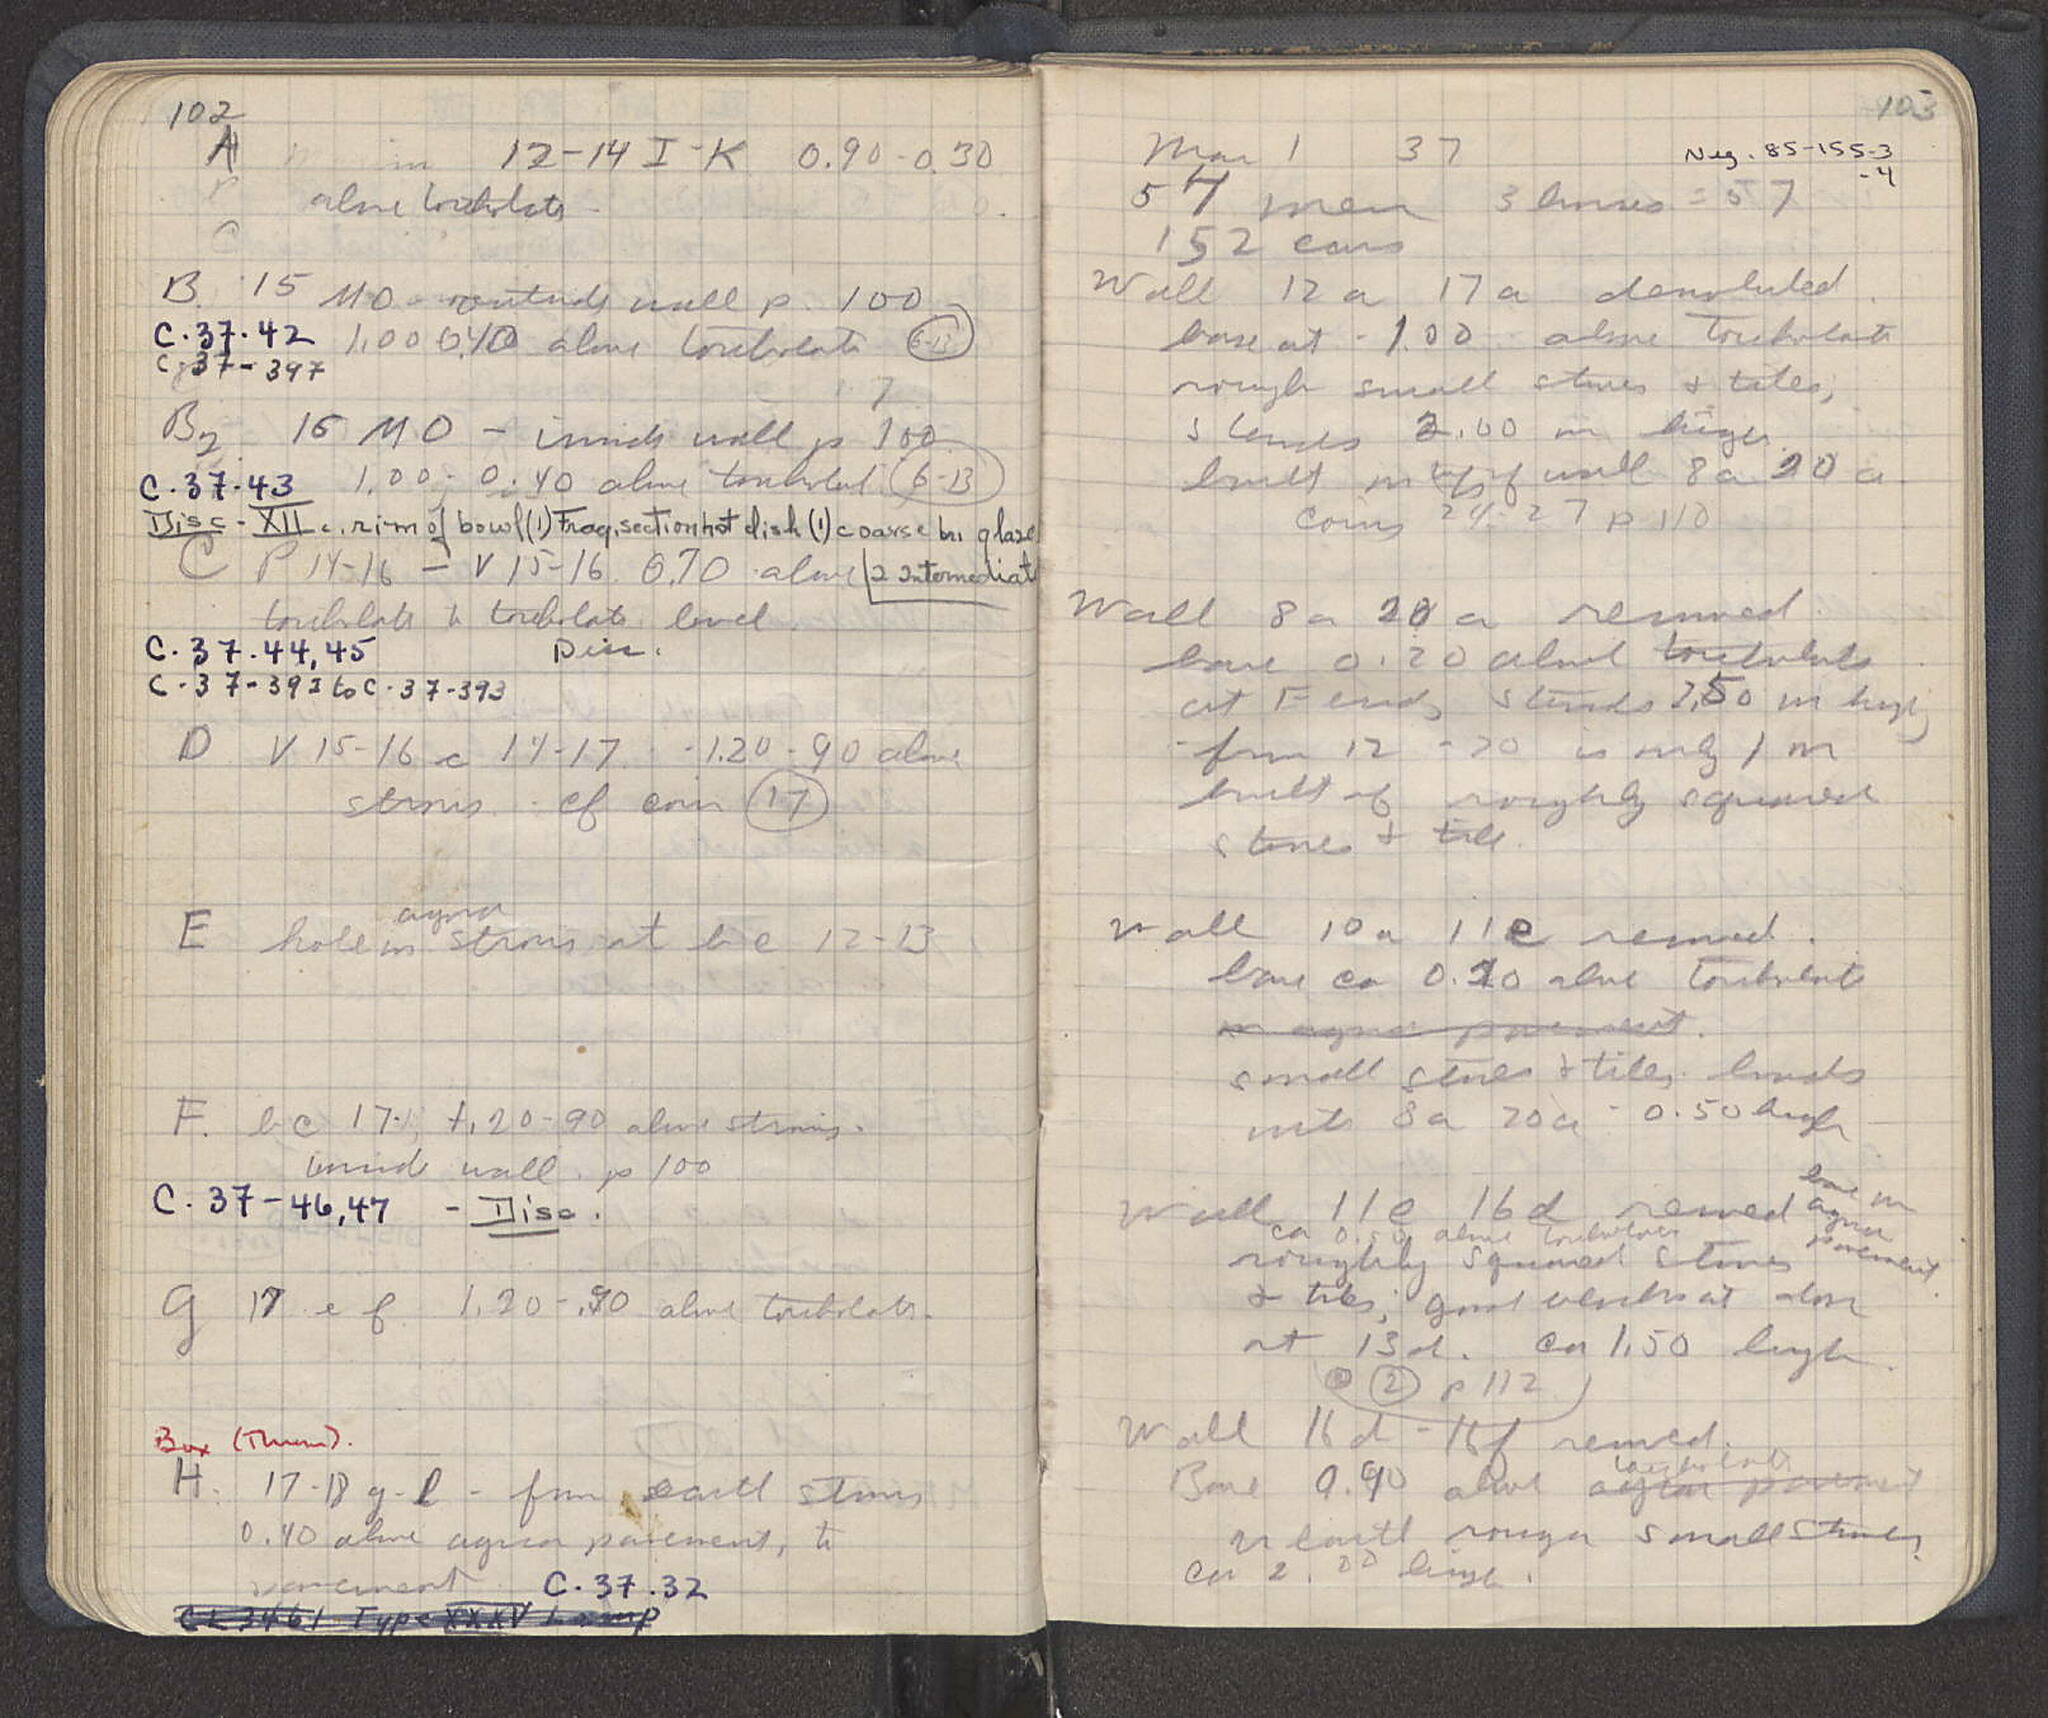 102
A 12-14 I-K 0.90-0.30
above torcholate
B. 15 MO - outside wall p. 100
C.37.42 1.00 0.40 above torcholate 6-13
C.37-397
B2 15 MO - inside wall p 100
C.37.43 1.00-0.40 above torcholat 6-13
Disc - XII c. rim of bowl (1) Frag. section hot dish (1) coarse br. glaze
C P 14-16 - V 15-16 0.70 above 2 intermediate
torcholate to torcholate level.
C.37.44,45 Disc.
C.37-391 to C.37-393
D V 15-16 c 14-17 -1.20-90 above
stroses cf coin 17
agora
E hole in stroses at b c 12-13
F. b c 17 1.20-90 above stroses.
inside wall. p 100
C.37-46,47 - Disc.
G 17 e f 1.20-.90 above torcholate.
Box (Thum).
H. 17-18 g-l - from earth stroses
0.40 above agora pavement, to
pavement C.37.32
CL 3461 Type XXXV Lamp
103
Mar 1 37 Neg. 85-155-3
-4
54 men 3 horses = 57
152 cars
Wall 12 a 17 a demolished.
base at - 1.00 above torcholate
rough small stones & tiles,
stands 2.00 m high.
built on top of wall 8 a 20 a
coins 24-27 p 110
Wall 8 a 20 a removed.
base 0.20 above torcholate
at E end, stands 2,50 m high,
from 12 - 20 is only 1 m
built of roughly squared
stones & tile.
Wall 10 a 11 e removed.
base ca 0.20 above torcholate
on agora pavement.
small stones & tiles. bonds
into 8 a 20 a - 0.50 high
Wall 11 e 16 d removed base on
agora
pavement.
ca 0.50 above torcholate
roughly squared stones
& tiles; good at door
at 13 d. ca 1.50 high.
2 p 112
Wall 16 d - 16 f removed.
torcholate
Base 0.90 above agora pavement
in earth rough small stones.
ca 2.00 high.